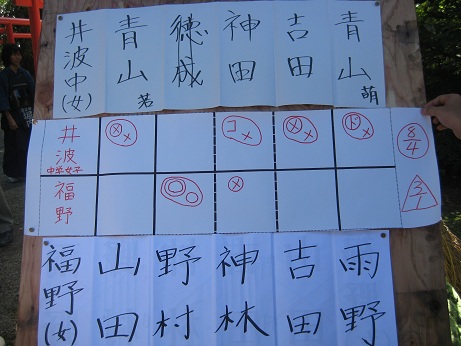 井波中(女) 青山若 徳成 神田 吉田 青山萌
井波中学女子 メメ コメ メメ ドメ 8/4
福野 メ 3/1
福野(女) 山田 野村 神林 吉田 雨野